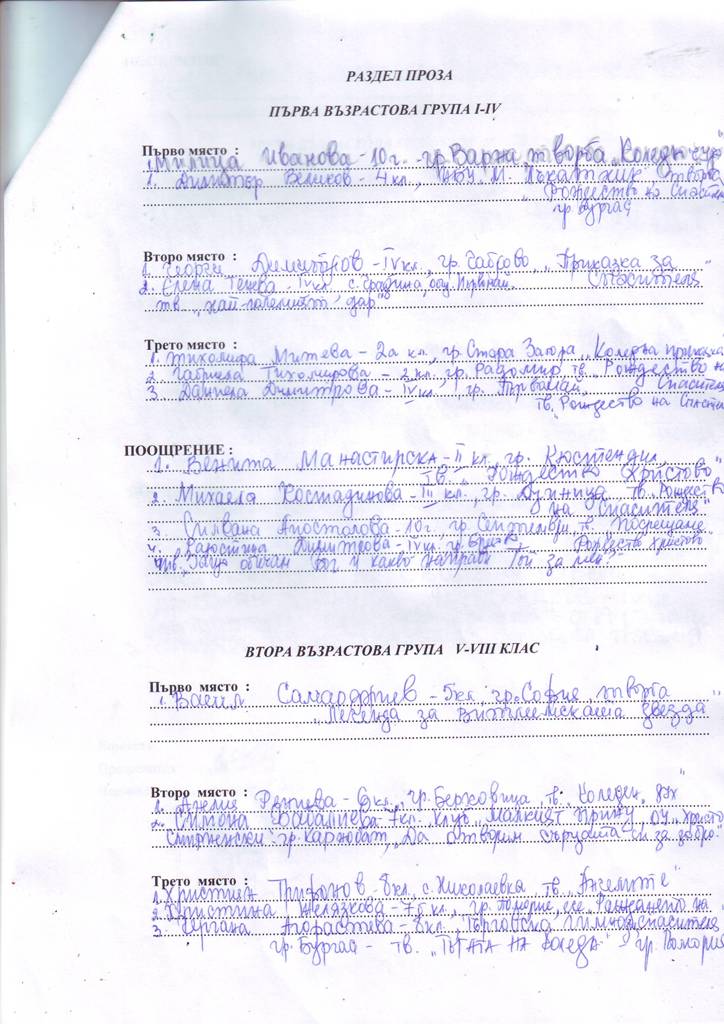 РАЗДЕЛ ПРОЗА
ПЪРВА ВЪЗРАСТОВА ГРУПА I-IV
Първо място :
Милица Иванова - 10 г. гр. Варна творба „Коледен
1. Димитър Великов - 4 кл., творба
„Рождество на Спасителя
гр. Бургас
Второ място :
1. Георги Димитров - IV кл., гр. Габрово, „Приказка за
2. Елена Тенева IV кл. с. Градина, общ. Първомай Спасителя"
тв. „Най-големият дар"
Трето място :
1. Митева - 2а кл., гр. Стара Загора „Коледна приказка
2. Габриела Тихомирова - 2 кл., гр. Радомир тв. Рождество на
3. Даниела Димитрова - IV кл., гр. Първомай, Спасителя
тв. Рождество на Спасителя
ПООЩРЕНИЕ :
1. Венита Манастирска - II кл. гр. Кюстендил
тв. „Рождество Христово"
2. Михаела Костадинова - III кл., гр. Дупница тв. Рождество
на Спасителя"
3. Силвана Апостолова - 10 г. гр. Септември, т. Посрещане
4. Димитрова - IV кл., гр. Рождество Христово"
тв. „Защо обичам Бог и какво направи Той за мен?"
ВТОРА ВЪЗРАСТОВА ГРУПА V-VIII КЛАС
Първо място :
1. Васил Самарджиев - 5 кл., гр. София творба
„Легенда за Витлеемската звезда
Второ място :
1. Анелия - 6 кл., гр. Берковица, тв. „Коледен дух"
2. Симона - 7 кл. Клуб „Малкият принц" ОУ „Христо
Смирненски" гр. Карнобат, „Да отворим сърцата си за добро"
Трето място :
1. Християн Трифонов - 8 кл., с. Николаевка тв. „Ангелите"
2. Кристина Желязкова - 7 б кл., гр. Поморие, есе „Раждането на
3. Гергана - 8 кл. Търговска гимназия Спасителя
гр. Бургас - тв. на Коледа" гр. Поморие